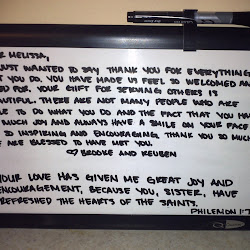 MELISSA,
JUST WANTED TO SAY THANK YOU FOR EVERYTHING
YOU DO. YOU HAVE MADE US FEEL SO WELCOMED AN
FOR. YOUR GIFT FOR SERVING OTHERS IS
THERE ARE NOT MANY PEOPLE WHO ARE
TO DO WHAT YOU DO AND THE FACT THAT YOU HA
MUCH JOY AND ALWAYS HAVE A SMILE ON YOUR FACE
SO INSPIRING AND ENCOURAGING. THANK YOU SO MUCH
ARE BLESSED TO HAVE MET YOU.
♡ BROOKE AND REUBEN
YOUR LOVE HAS GIVEN ME GREAT JOY AND
ENCOURAGEMENT, BECAUSE YOU, SISTER, HAVE
REFRESHED THE HEARTS OF THE SAINTS.
PHILEMON 1:7